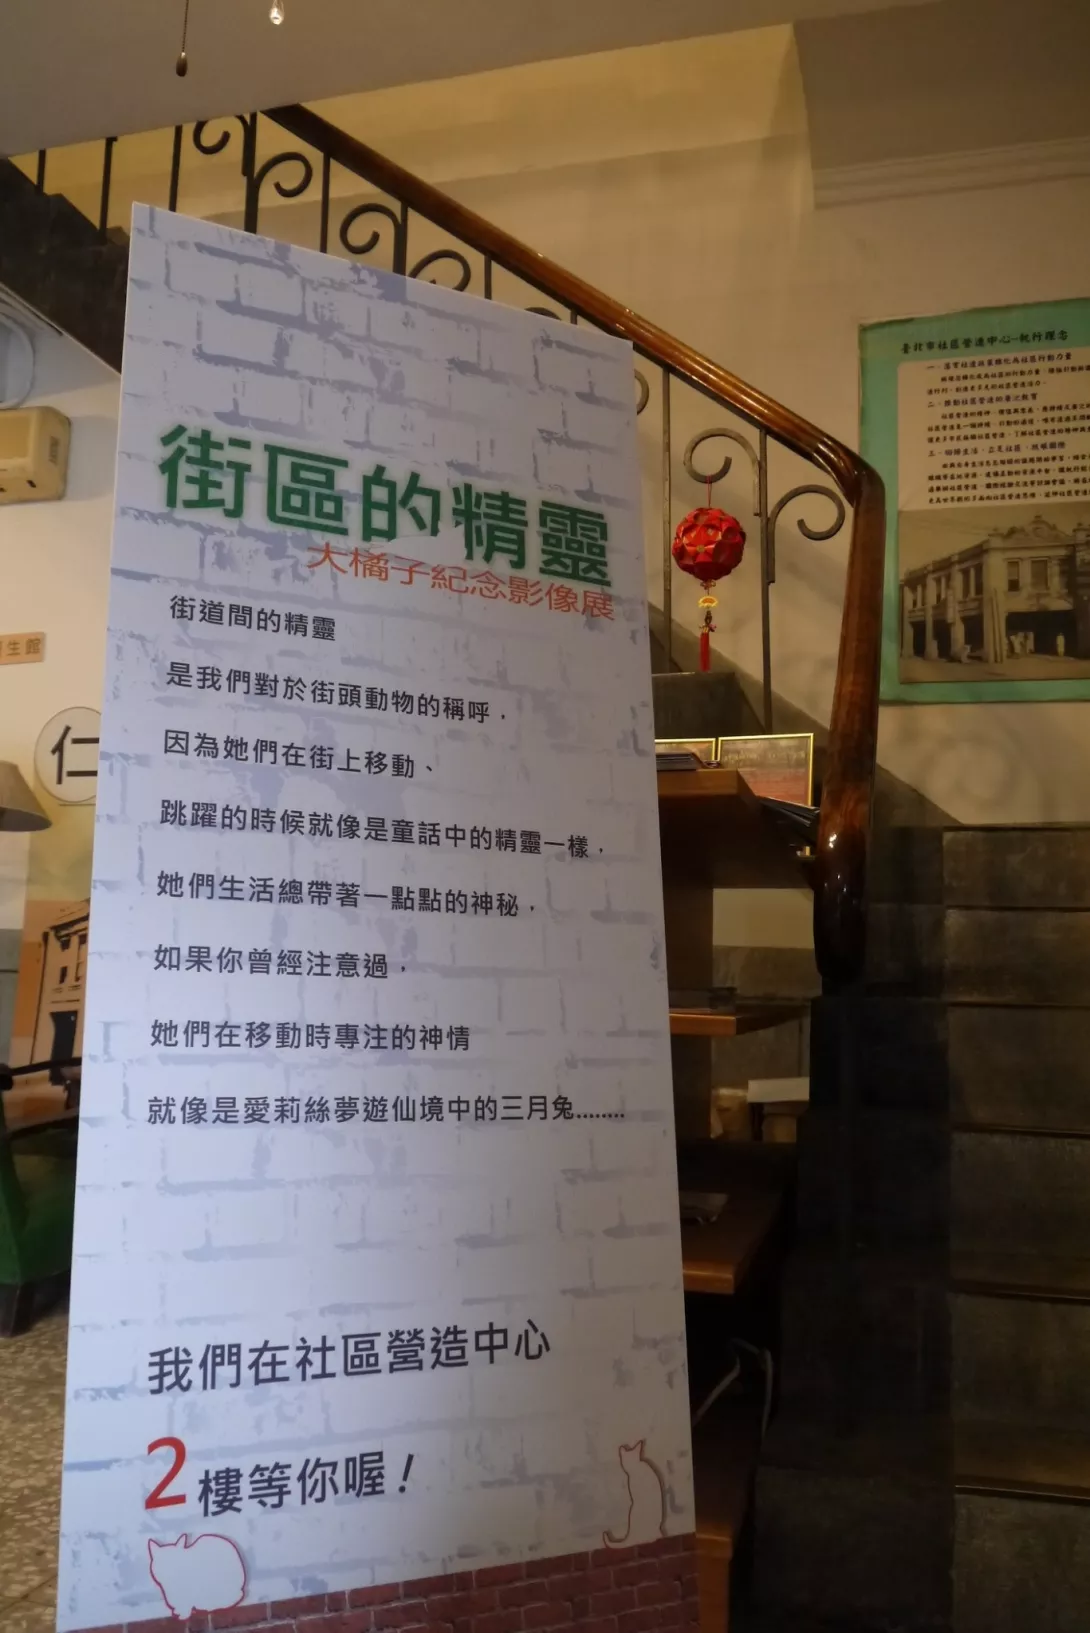 街區的精靈
大橘子紀念影像展
街道間的精靈
是我們對於街頭動物的稱呼，
因為她們在街上移動、
跳躍的時候就像是童話中的精靈一樣，
她們生活總帶著一點點的神秘，
如果你曾經注意過，
她們在移動時專注的神情
就像是愛莉絲夢遊仙境中的三月兔........
我們在社區營造中心
2樓等你喔！
臺北市社區營造中心-執行理念
生館
仁